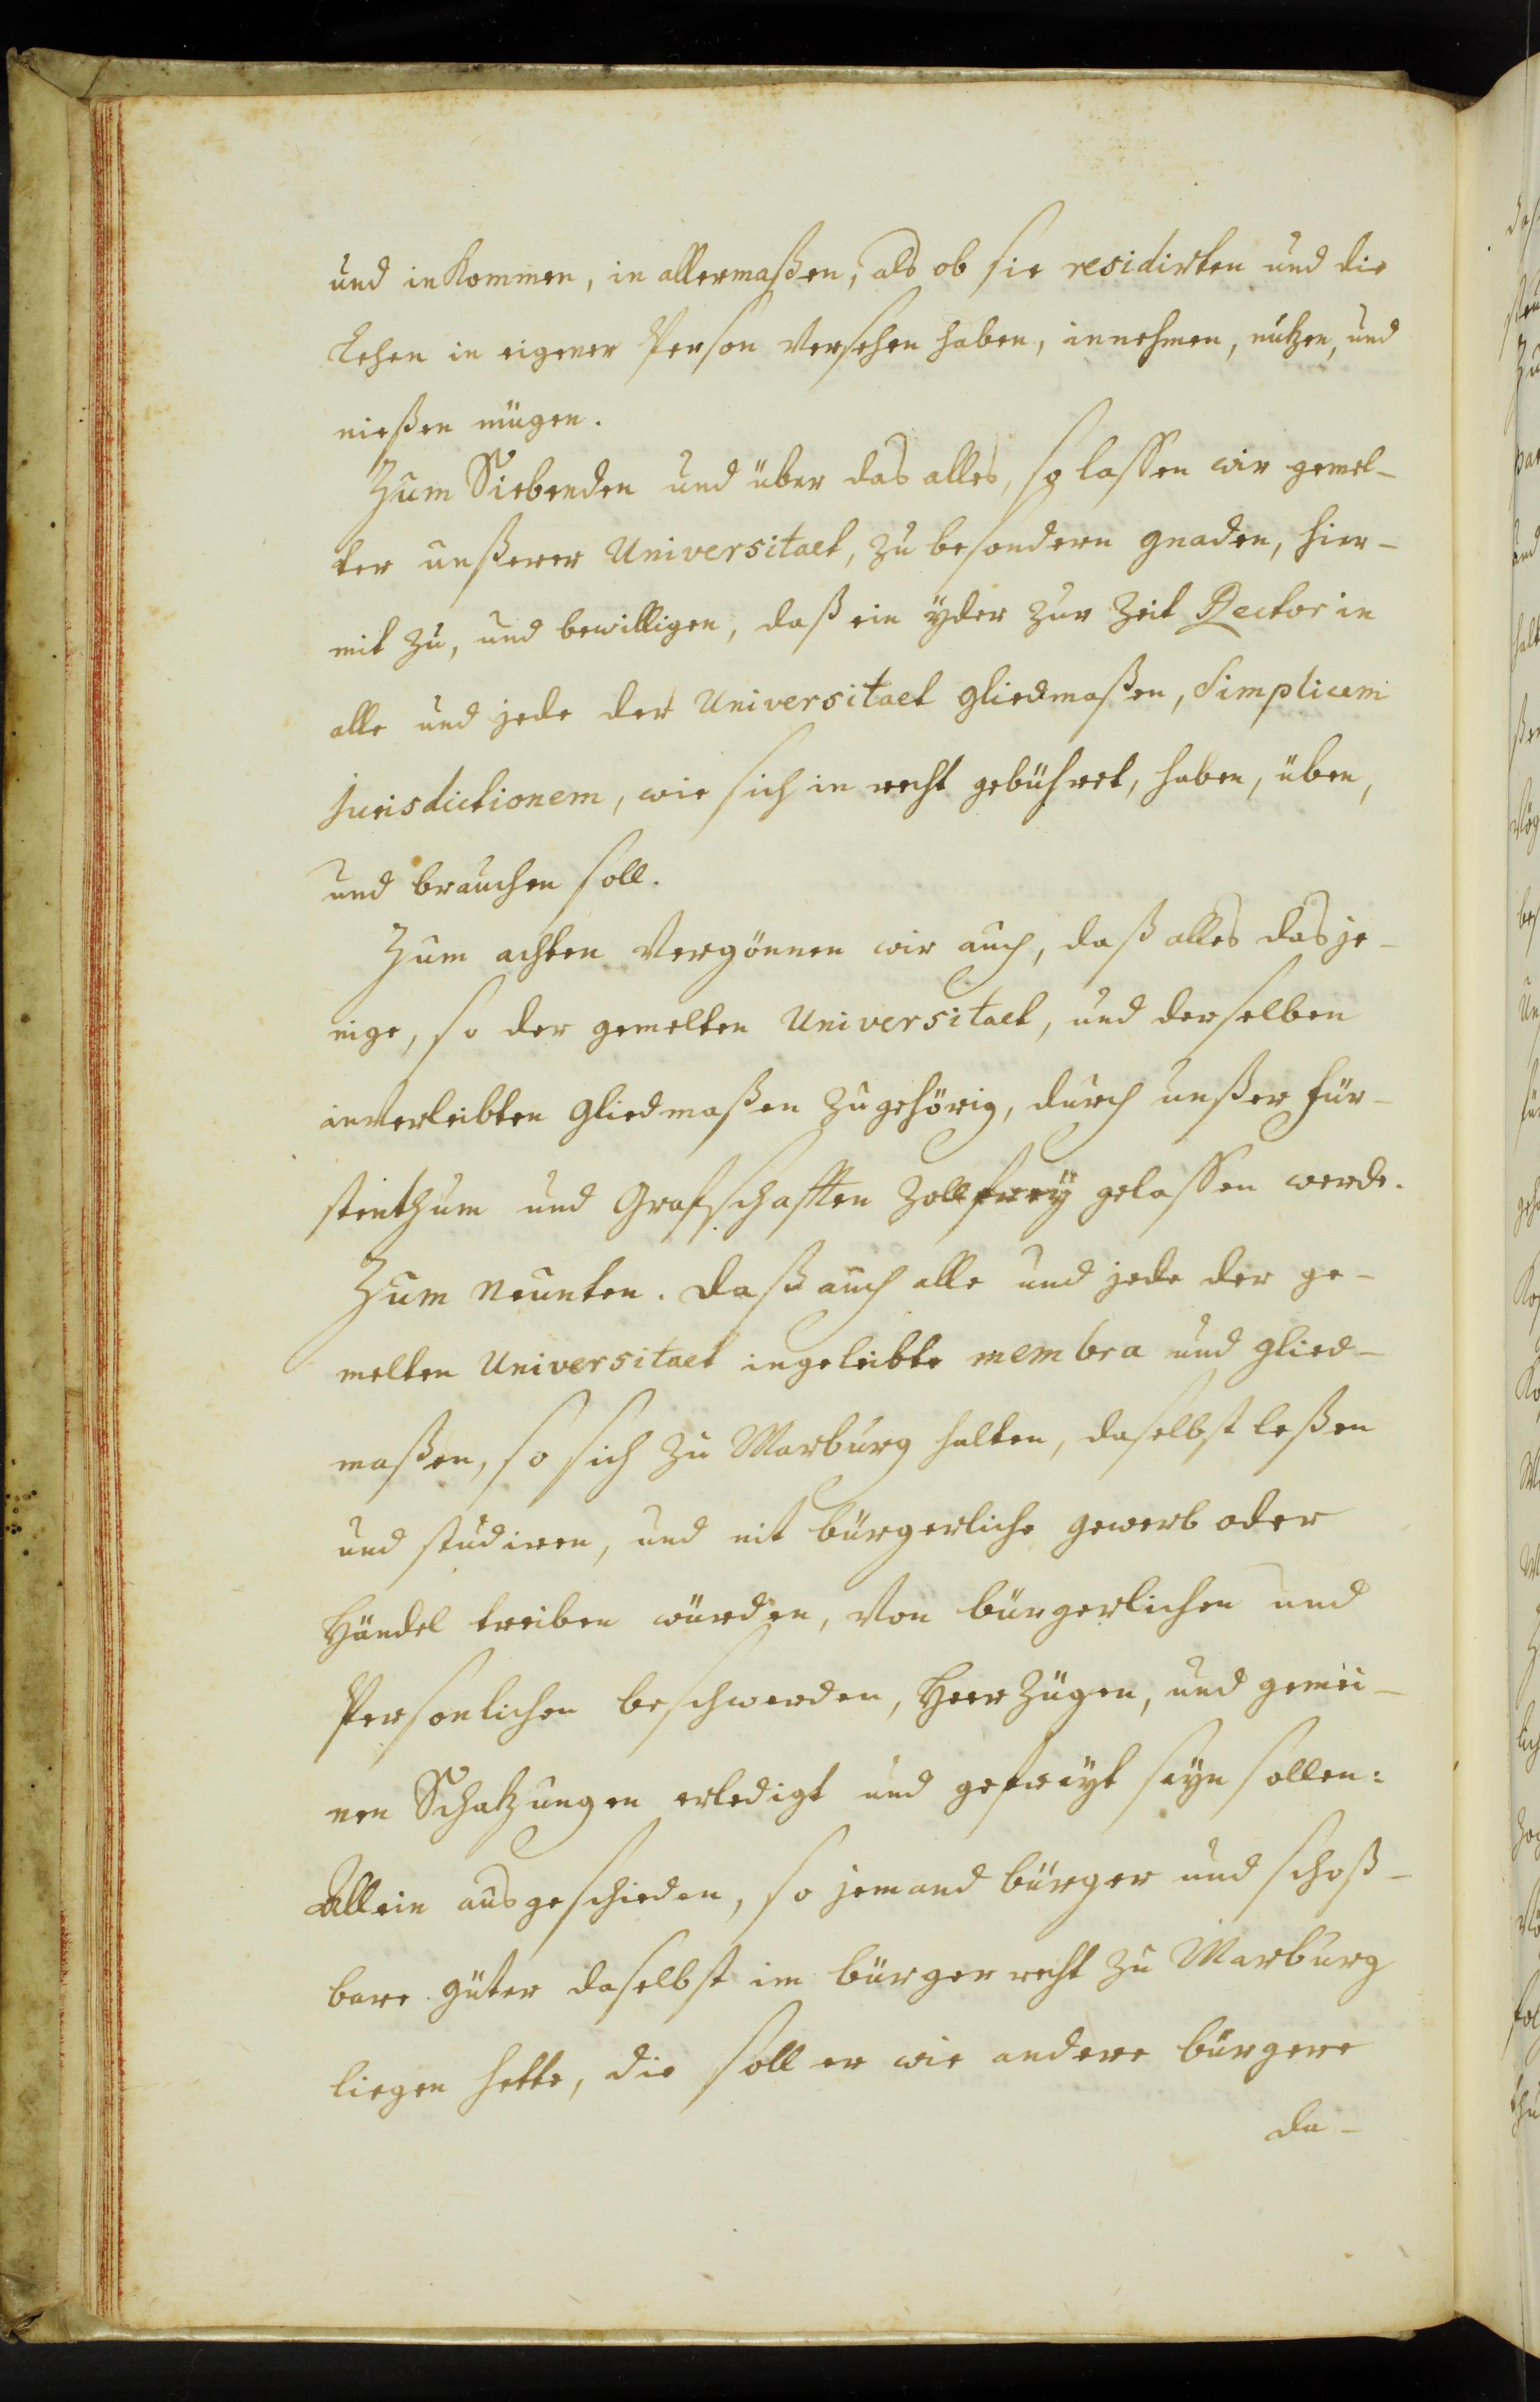 und inkommen, in allermaßen, als ob sie residirten und die
Lehen in eigener Person versehen haben, innehmen, nützen, und
nießen mügen.
Zum Siebenden und über das alles, so lassen wir gemel-
ter unßerer Universitaet, zu besondern gnaden, hier-
mit zu, und bewilligen, daß ein yder zur zeit Rector in
alle und jede der Universitaet gliedmaßen, Simplicem
jurisdictionem, wie sich in recht gebühret, haben, üben,
und brauchen soll.
Zum achten vergönnen wir auch, daß alles das je-
nige, so der gemelten Universitaet, und derselben
inverleibten gliedmaßen zugehörig, durch unßer für-
stenthum und Grafschafften zollfrey gelassen werde.
Zum Neunten. daß auch alle und jede der ge-
melten Universitaet ingeleibte membra und glied-
maßen, so sich zu Marburg halten, daselbst leßen
und studiren, und nit bürgerliche gewerb oder
Händel treiben würden, von bürgerlichen und
Persönlichen beschwerden, Heerzügen, und gemei-
nen Schatzungen erledigt und gefreyt seyn sollen:
Allein ausgeschieden, so jemand bürger und schoß-
bare güter daselbst im bürgerrecht zu Marburg
liegen hette, die soll er wie andere bürgere
da-